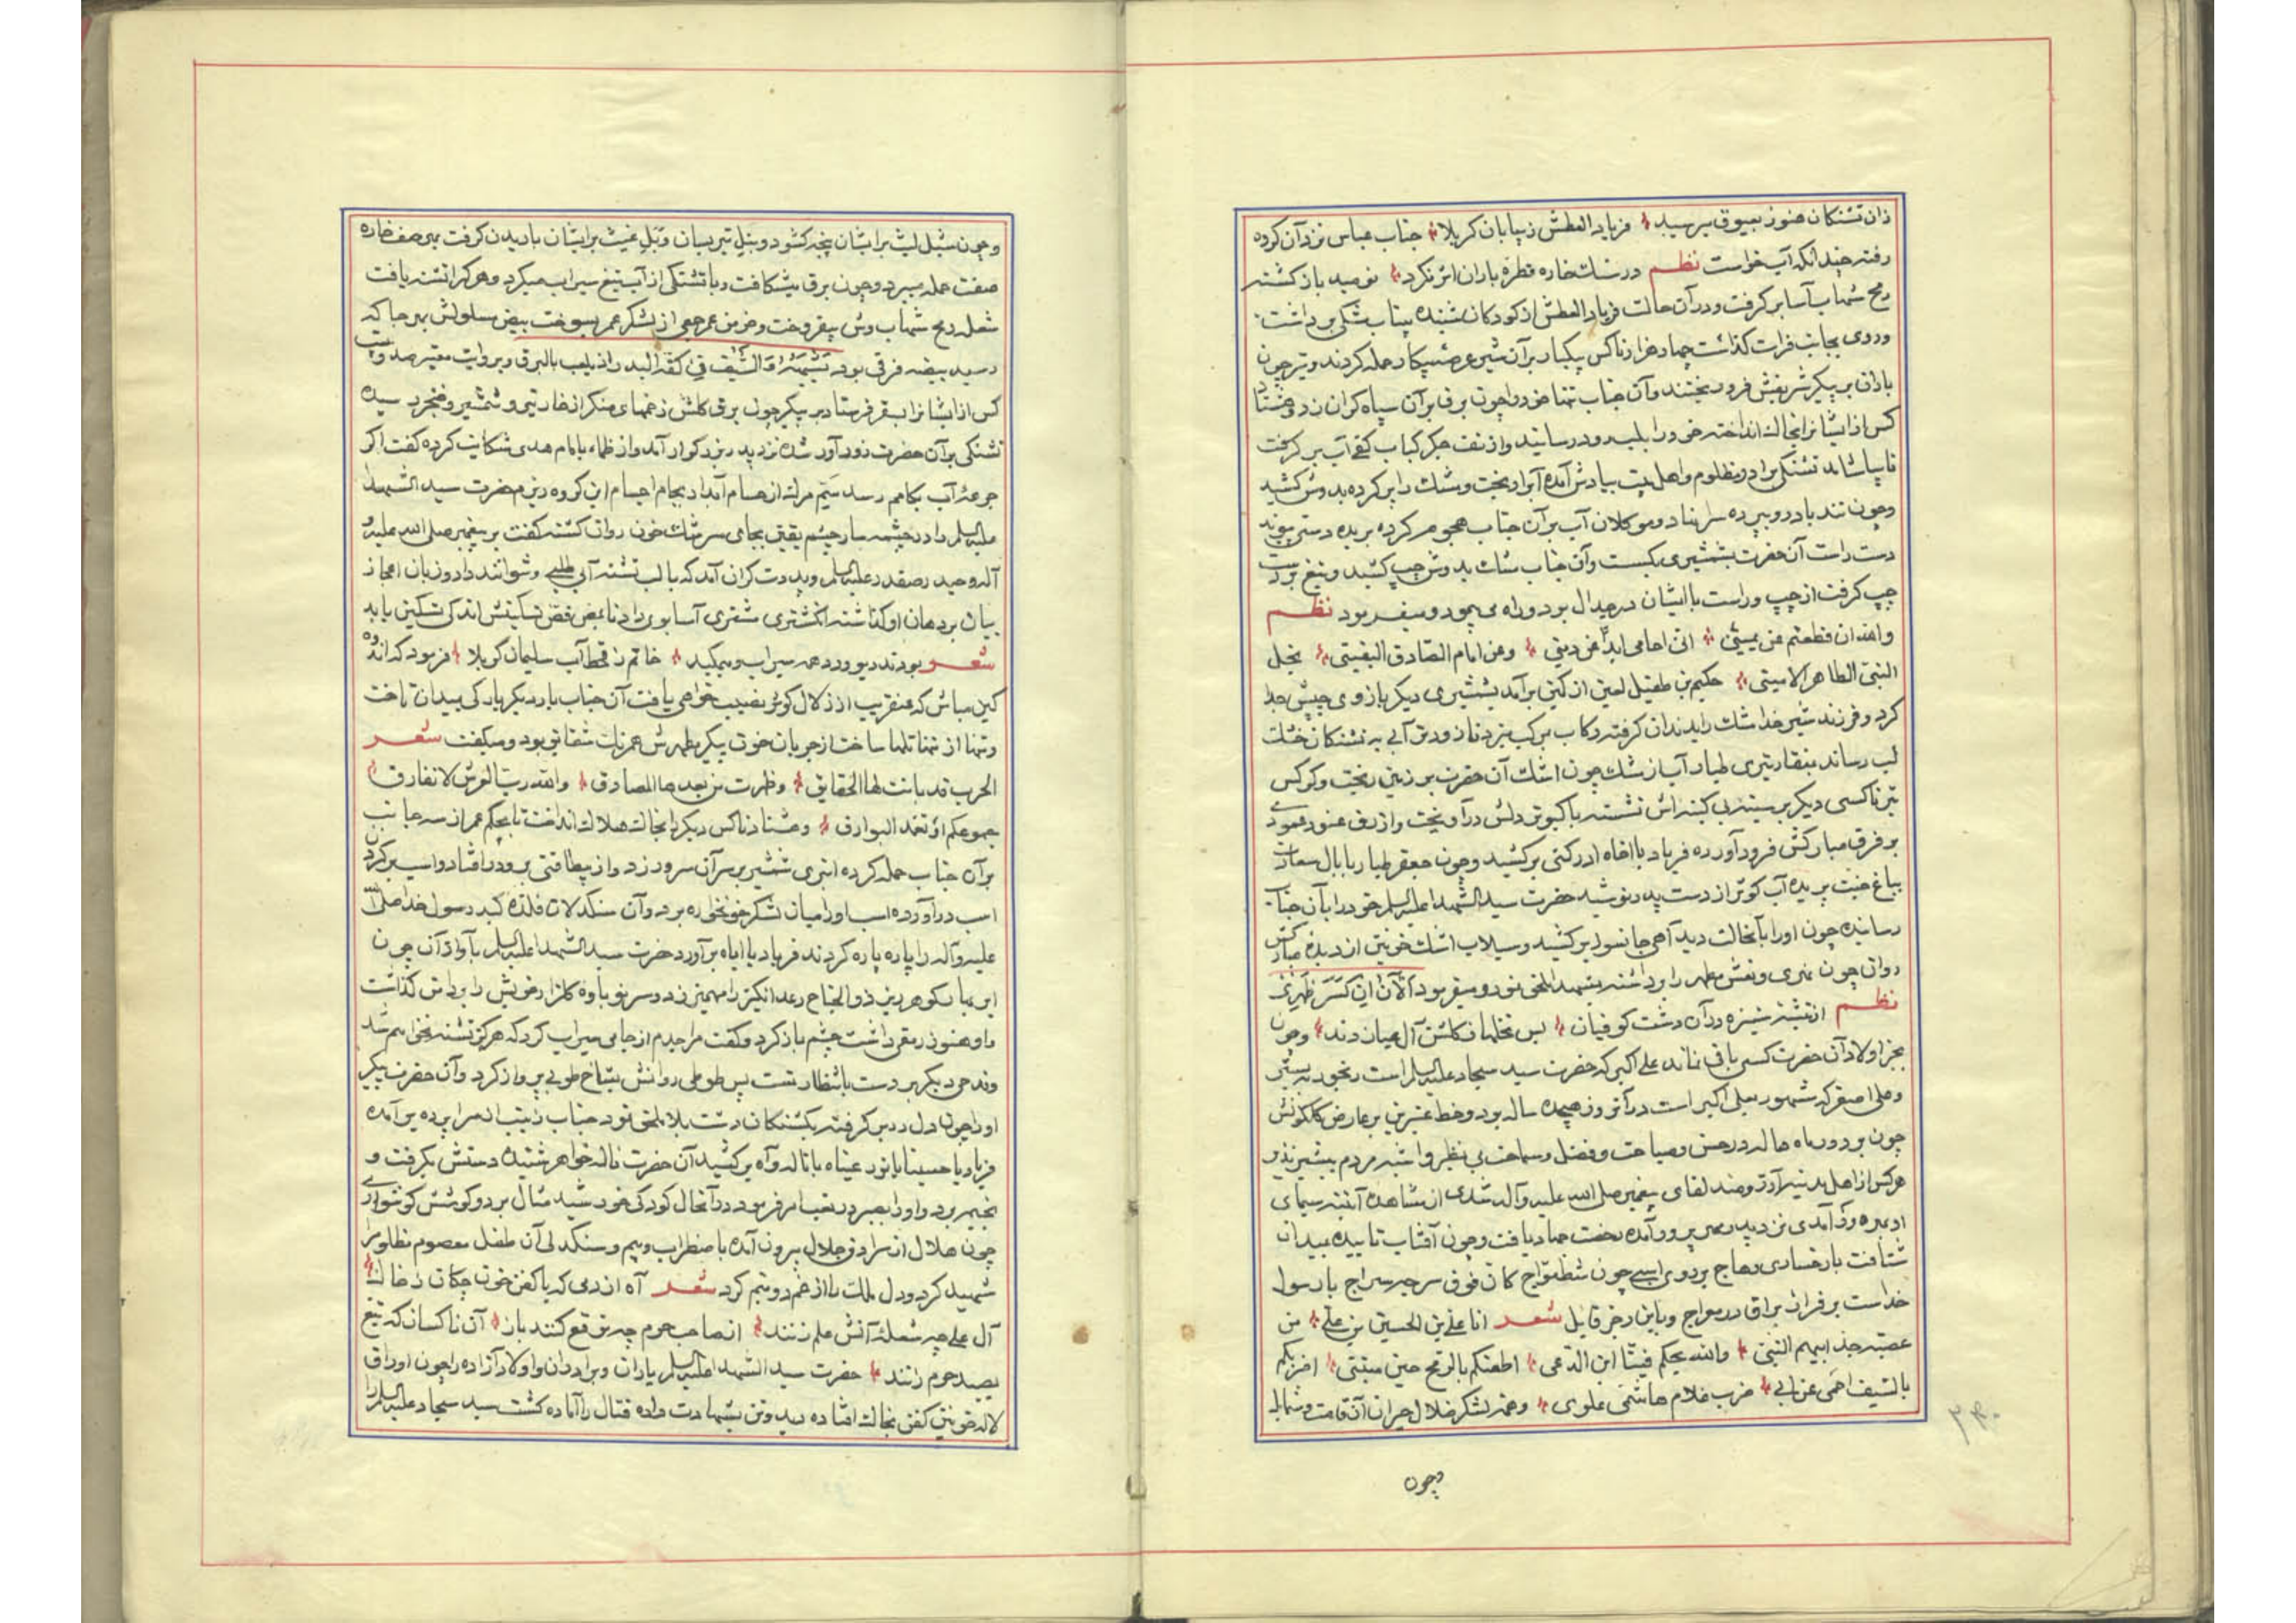 ذان تشنکان هنوز بعیوق میرسید فریاد العطش ز بیابان کربلا جناب عباس نزد آن کروه
رفته چندانکه آب خواست نظم در سنك خاره قطره باران اثر نکرد نومید بازکشته
رمح شهاب آسا بر کرفت و در آن حالت فریاد العطش از کودکان شنیده بیتاب مشکی برداشت
و روی بجانب فرات کذاشت چهار هزار ناکس یکبار بر آن شیر عرصه پیکار حمله کردند و تیر چون
باران بر پیکر شریفش فرو ریختند و آن جناب تنها خود را چون برق بر آن سیاه کران زد و هشتاد
کس از ایشانرا بخاك انداخته خود را بلب رود رسانید و از تف جکر کباب کفی آب بر کرفت
تا بیاشامد تشنکی برادر مظلوم و اهل بیت بیادش آمده آبرا ریخت و مشك را پر کرده بدوش کشید
و چون تند باد رو بپرده سرا نهاد و موکلان آب بر آن جناب هجوم کرده بریده دستی
دست راست آن حضرت بشمشیری بکسست و آن جناب مشك بدوش چپ کشید و تیغ بدست
چپ کرفت از چپ و راست با ایشان در جدال بود و راه می پیمود و میفرمود نظم
والله ان قطعتم عن یمینی انی احامی ابدا عن دینی و عن امام الصادق الیقینی نجل
النبی الطاهر الامینی حکیم بن طفیل لعین از کمین برآمد بشمشیری دیکر بازوی چپش جدا
کرد و فرزند شیر خدا مشك را بدندان کرفته رکاب بر مرکب میزد تا زودتر آبی به تشنکان خشك
لب رساند بمنقار تیری طیار آب از مشك چون اشك آن حضرت بر زمین ریخت و کرکس
تیر ناکسی دیکر بر سینه بی کینه اش نشسته با کبوتر دلش درآویخت و از عنود عمودی
بر فرق مبارکش فرود آورده فریاد یا اخاه ادرکنی برکشید و چون جعفر طیار با بال سعادت
بباغ جنت پریده آب کوثر از دست پدر نوشید حضرت سید الشهدا علیه السلام خود را بآن جناب
رسانیده چون او را بآنحالت دید آهی جانسوز برکشید و سیلاب اشك خونین از دیده مبارکش
روان چون نهری و نعش مطهر را برداشته بشهدا ملحق نمود و میفرمود الآن انکسر ظهری
نظم از تیشه ستیزه در آن دشت کوفیان بس نخلها ز کلشن آل عیان زدند و چون
بجز اولاد آن حضرت کسی باقی نماند علی اکبر که حضرت سید سجاد علیه السلام است رنجور به بستر
و علی اصغر که مشهور بعلی اکبر است در آنروز هیجده ساله بود و خط عنبرین بر عارض کلکونش
چون بر دور ماه هاله در حسن و صباحت و فضل و سماحت بی نظیر و اشبه مردم ببشیر نذیر
هرکس از اهل مدینه آرزومند لقای پیغمبر صلی الله علیه و آله شدی از مشاهده آینه سیمای
او بهره ور آمدی نزد پدر آمده رخصت جهاد یافت و چون آفتاب تابیده بمیدان
شتافت با رخساری وهاج بر روی اسبی چون شط مواج کان فوق سرجه سراج یا رسول
خداست بر فراز براق در معراج و باین رجز قایل شعر انا علی بن الحسین بن علی من
عصبة جد ابیهم النبی والله لا یحکم فینا ابن الدعی اطعنکم بالرمح حین ینثنی اضربکم
بالسیف احمی عن ابی ضرب غلام هاشمی علوی و عمر لشکر ضلال حیران آن قامت و شمایل
وچون
و چون شبل لیث بر ایشان پنجه کشود و بنبل تیر بسان وبل غیث بر ایشان باریدن کرفت بهر صف خاره
صفت حمله میبرد و چون برق میشکافت و با تشنکی از آب تیغ سیراب میکرد و هر کرا تشنه یافت
شعله رمح شهاب وش بیفروخت و خرمن عمر جمعی از لشکر عمر بسوخت بیض مسلولش بهر جا که
رسید بیضه فرقی بود السیف فی کفه البدر اذ یلعب بالبرق و بروایت معتبر صد و بیست
کس از ایشانرا بسقر فرستاد بر پیکر چون برق کلش زخمهای منکر از خار تیر و شمشیر و خنجر رسیده
تشنکی بر آن حضرت زورآور شده نزد پدر بزرکوار آمد و از ظماء بامام هدی شکایت کرده کفت اکر
جرعه آب بکامم رسد سم مرك از حسام آبدار بجام اجسام این کروه ریزم حضرت سید الشهدا
علیه السلام را در چشمه سار چشم بجای سرشك خون روان کشته کفت بر پیغمبر صلی الله علیه و
آله و حیدر صفدر علیه السلام و پدرت کران آمد که با لب تشنه آبی طلبی و نتوانند داد و زبان اعجاز
بیان بر دهان او کذاشته انکشتری مشتری آسا بوی داد تا بمص فص تسکینش اندکی تسکین یابد
شعر بودند دیو و دد همه سیراب و میمکید خاتم ز قحط آب سلیمان کربلا فرمود که اندوه
کین مباش که عنقریب از زلال کوثر نصیب خواهی یافت آن جناب بار دیکر بارکی بمیدان تاخت
و تنها از تنها تلها ساخت از جریان خون پیکر مطهرش همرنك شقایق بود و میکفت شعر
الحرب قد بانت لها الحقایق و ظهرت من بعدها المصادق والله رب العرش لا نفارق
جموعکم او تغمد البوارق و هشتاد ناکس دیکر را بخاك هلاك انداخت تا بحکم عمر از سه جانب
بر آن جناب حمله کرده ابتری شمشیر بر سر آن سرور زد و از بیطاقتی برو در افتاد و اسب بر کردن
اسب درآورده اسب او را میان لشکر خونخواره برد و آن سنکدلان فلذه کبد رسول خدا صلی الله
علیه و آله را پاره پاره کردند فریاد یا ابتاه برآورد حضرت سید الشهدا علیه السلام بآواز آن چون
ابر بهار بکوهر ریزی ذو الجناح رعد انکیز را مهمیز زد و سر نوباوه کلزار خویش را بدامن کذاشت
و او هنوز رمقی داشت چشم باز کرد و کفت مرا جدم از جامی سیراب کرد که هرکز تشنه نخواهم شد
و قدحی دیکر بر دست بانتظار تست پس طوطی روانش بشاخ طوبی پرواز کرد و آن حضرت پیکر
او را چون دل در بر کرفته بکشتکان دشت بلا ملحق نمود جناب زینب از سراپرده برآمده
فریاد یا حسینا یا نور عیناه با ناله و آه برکشید آن حضرت ناله خواهر شنیده دستش بکرفت و
بخیمه برد و او را بصبر در مصایب امر فرمود در آنحال کودکی خورشید مثال بر دو کوشش کوشواره
چون هلال از سرادق جلال بیرون آمده با اضطراب و بیم و سنکدلی آن طفل معصوم مظلوم را
شهید کرد و دل ملك را از غم دو نیم کرد شعر آه از دمی که با کفن خون چکان ز خاك
آل علی چو شعله آتش علم زنند از صاحب حرم چه توقع کنند باز آن ناکسان که تیغ
بصید حرم زنند حضرت سید الشهدا علیه السلام یاران و برادران و اولاد آزاده را چون اوراق
لاله خونین کفن بخاك افتاده دید و تن بشهادت داده قتال را آماده کشت سید سجاد علیه السلام را